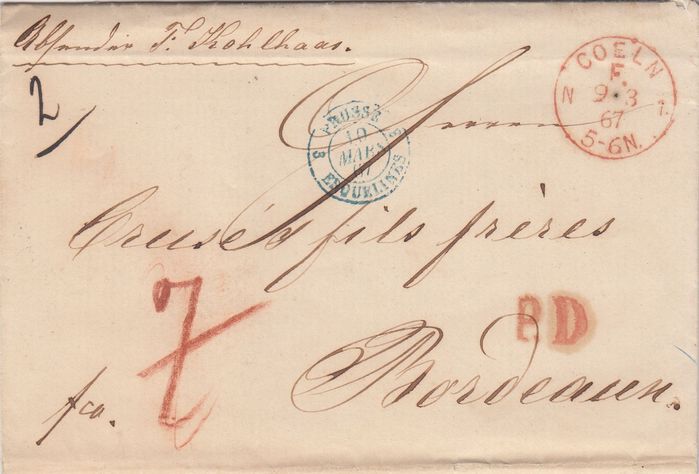 Absender F. Kohlhaas.
2
COELN
F.
N 9 3 1
67
5-6N.
PRUSSE
3 3
10
MARS
67
ERQUELINES
Herren
Cruse & fils frères
7
P.D
fco.
Bordeaux.